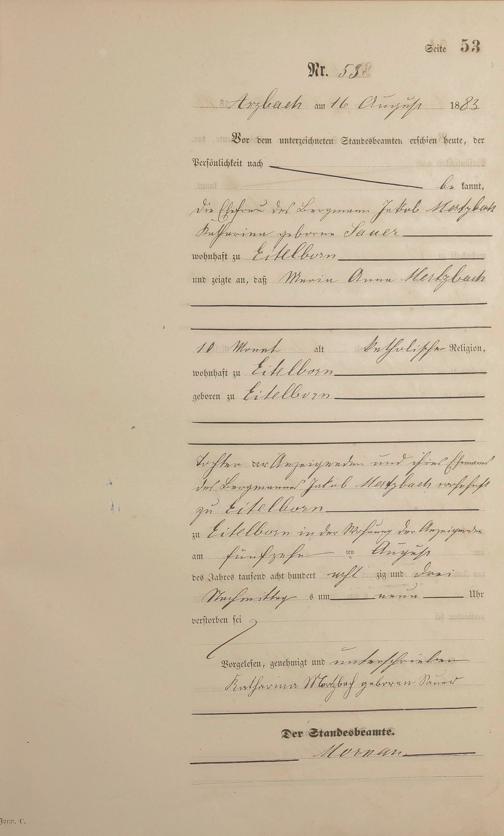 Seite 53
Nr. 53
Arzbach am 16 August 1883
Vor dem unterzeichneten Standesbeamten erschien heute, der
Persönlichkeit nach
be kannt,
die Ehefrau des Bergmann Jakob
Katharina geborne Sauer
wohnhaft zu Eitelborn
und zeigte an, daß Maria Anna
10 Monat alt katholischer Religion,
wohnhaft zu Eitelborn
geboren zu Eitelborn
Tochter der Anzeigenden und ihres Ehemanns
des Bergmannes Jakob wohnhaft
zu Eitelborn
zu Eitelborn in der Wohnung der Anzeigenden
am fünfzehn ten August
des Jahres tausend acht hundert acht zig und drei
Nachmittag s um neun Uhr
verstorben sei
Vorgelesen, genehmigt und unterschrieben
Katharina geboren Sauer
Der Standesbeamte.
Form. C.